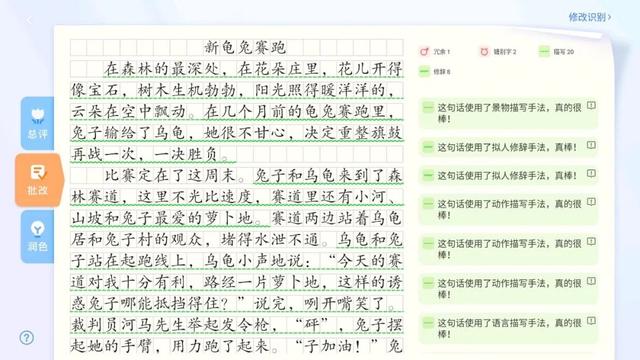 修改识别>
新龟兔赛跑
在森林的最深处，在花朵庄里，花儿开得
像宝石，树木生机勃勃，阳光照得暖洋洋的，
云朵在空中飘动。在几个月前的龟兔赛跑里，
兔子输给了乌龟，她很不甘心，决定重整旗鼓
再战一次，一决胜负。
比赛定在了这周末。兔子和乌龟来到了森
林赛道，这里不光比速度，赛道里还有小河、
山坡和兔子最爱的萝卜地。赛道两边站着乌龟
居和兔子村的观众，堵得水泄不通。乌龟和兔
子站在起跑线上，乌龟小声地说：“今天的赛
道对我十分有利，路经一片萝卜地，这样的诱
惑兔子哪能抵挡得住？”说定，咧开嘴笑了。
裁判员河马先生举起发令枪，“砰”，兔子摆
起她的手臂，用力跑了起来。“子加油！”兔
总评
批改
润色
冗余 1
错别字 2
描写 20
修辞 8
这句话使用了景物描写手法，真的很
棒！
这句话使用了拟人修辞手法，真棒！
这句话使用了拟人修辞手法，真棒！
这句话使用了动作描写手法，真的很
棒！
这句话使用了动作描写手法，真的很
棒！
这句话使用了动作描写手法，真的很
棒！
这句话使用了语言描写手法，真的很
棒！